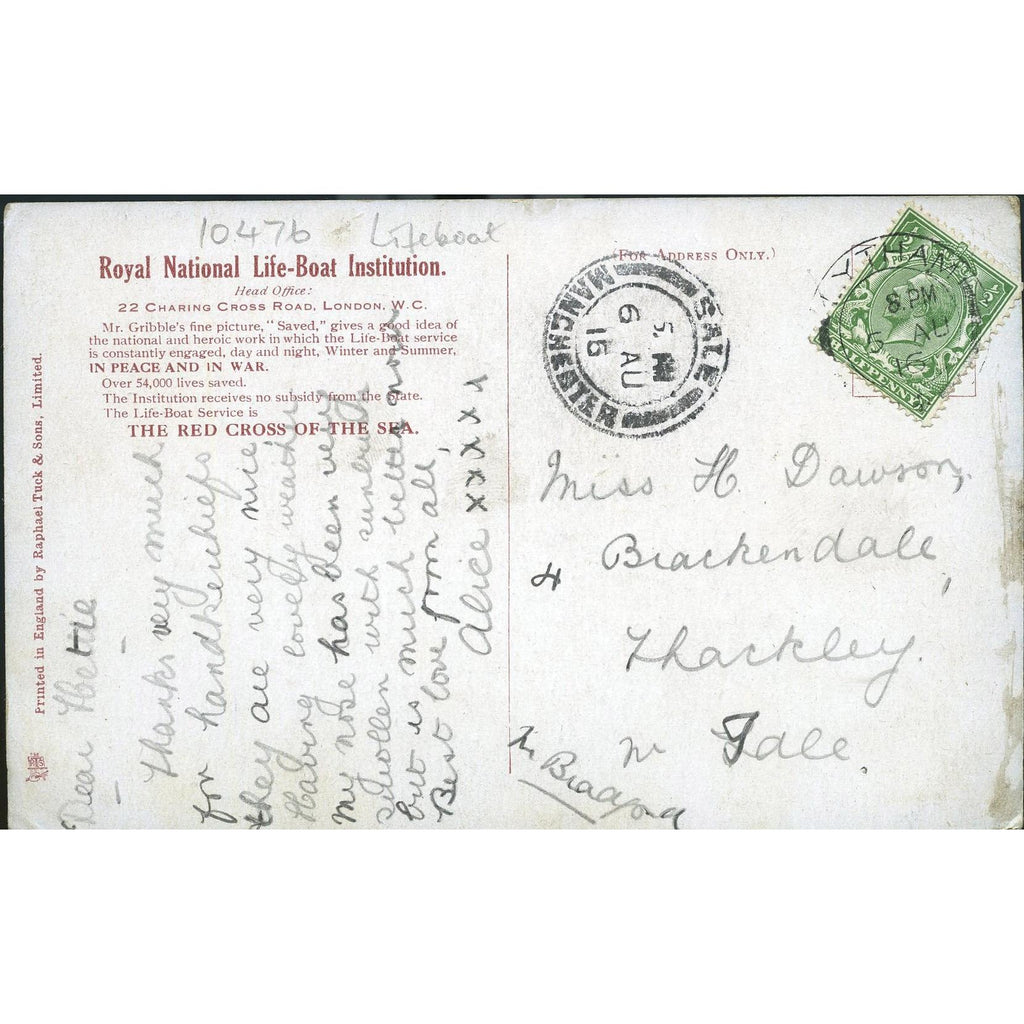 10476 Lifeboat
Royal National Life-Boat Institution.
Head Office:
22 Charing Cross Road, London, W.C.
Mr. Gribble's fine picture, "Saved," gives a good idea of
the national and heroic work in which the Life-Boat service
is constantly engaged, day and night, Winter and Summer,
IN PEACE AND IN WAR.
Over 54,000 lives saved.
The Institution receives no subsidy from the State.
The Life-Boat Service is
THE RED CROSS OF THE SEA.
Printed in England by Raphael Tuck & Sons, Limited.
Dear Hettie
Thanks very much
for handkerchiefs
they are very nice
Having lovely weather
my nose has been very
swollen with sunburn
but is much better now
Best love from all,
Alice xxxxx
(For Address Only.)
SALE
MANCHESTER
6 AU
15
LYTHAM
8. PM
5 AU
HALFPENNY
Miss H. Dawson,
Brackendale,
4
Thackley.
nr Idale.
Nr Bradford